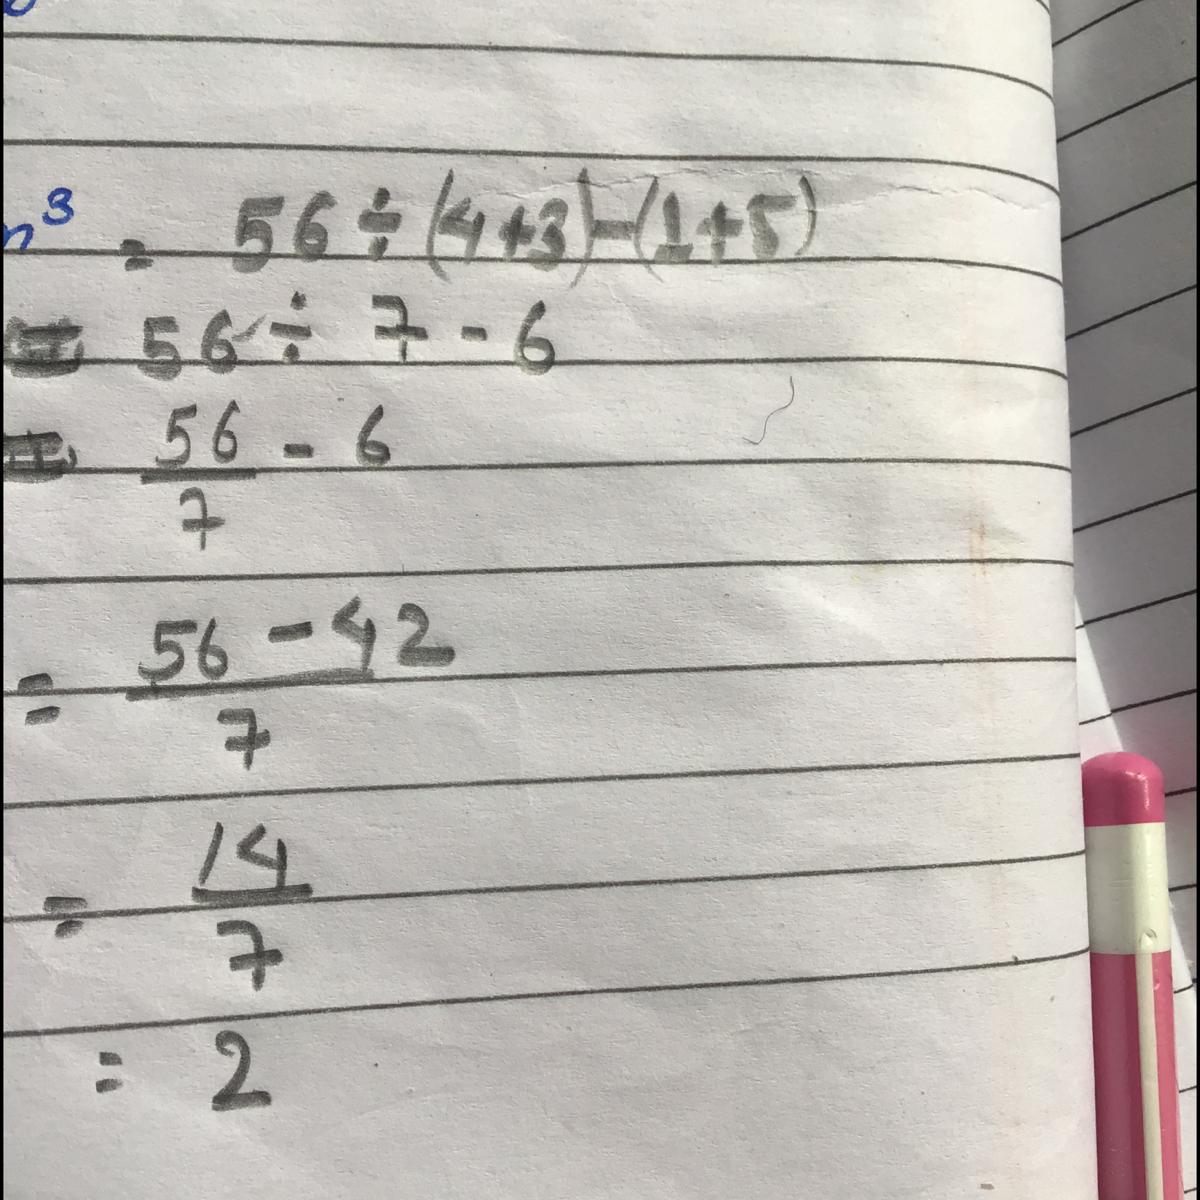 n³ = 56 ÷ (4+3) - (1+5)
= 56 ÷ 7 - 6
= 56/7 - 6
= 56 - 42/7
= 14/7
= 2